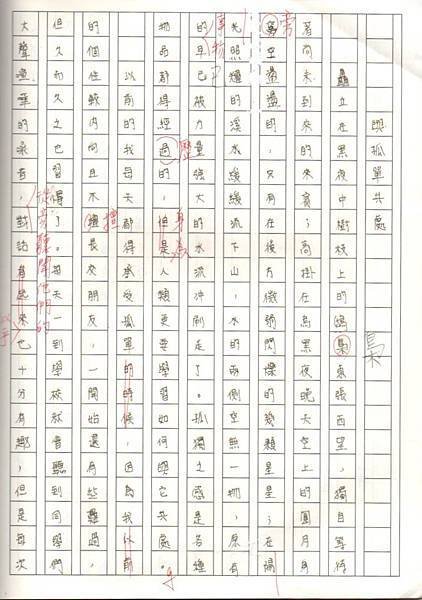 與孤單共處
矗立在黑夜中樹枝上的鴟梟東張西望，獨自等待
著尚未到來的來賓；高掛在烏黑夜晚天空上的圓月身
空蕩蕩的，只有在後方微微閃爍的幾顆星星；在
光照耀的溪水，緩緩的流下山，水的兩側空無一物，原有
的早已被力量強大的水流沖刷走了。孤獨之感是各種
物品都得經過，但是人類更要學習如何與它共處。
以前的我每天都得承受孤單的時候，因為我以前
的個性較內向且不擅長交朋友，開始還有些難過
但久而久之也習慣了。每天一到學校就會聽到同學們
大聲喧嘩的嗓音，對話起來也十分有趣，但是每次